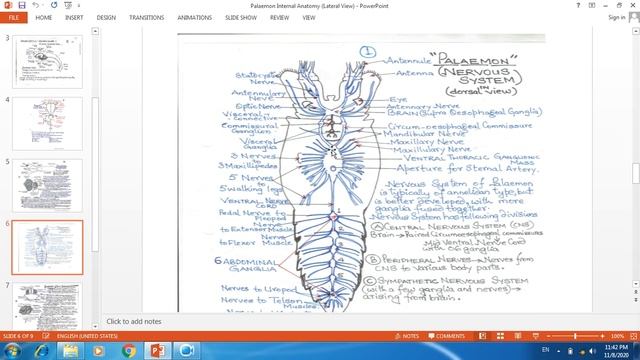 Palaemon Internal Anatomy (Lateral View) - PowerPoint
FILE HOME INSERT DESIGN TRANSITIONS ANIMATIONS SLIDE SHOW REVIEW VIEW
Sign in
3
4
5
6
7
8
1
"PALAEMON"
(NERVOUS
SYSTEM)
(dorsal view)
Antennule
Antenna
Statocyst
Nerve
Antennulary
Nerve
Optic Nerve
Visceral
Connective
Commissural
Ganglion
Visceral
Ganglia
3 Nerves
to
3 Maxillipedes
5 Nerves
to
5 walking legs
VENTRAL NERVE
CORD
Pedal Nerve to
Pleopod
Nerve
to Extensor Muscle
Nerve
to Flexor Muscle
6 ABDOMINAL
GANGLIA
Nerves to Uropod
Nerves to Telson
Muscles
Eye
Antennary Nerve
BRAIN (Supra Oesophageal Ganglia)
Circum-oesophageal Commissure
Mandibular Nerve
Maxillary Nerve
Maxillulary Nerve
VENTRAL THORACIC GANGLIONIC
MASS
Aperture for Sternal Artery.
Nervous System of Palaemon
is typically of annelidan type, but
is better developed, with more
ganglia fused together.
Nervous System has following divisions
A CENTRAL NERVOUS SYSTEM (CNS)
Brain → Paired Circumoesophageal commissures
Mid Ventral Nerve Cord
with 06 ganglia
B PERIPHERAL NERVES → Nerves from
CNS to various body parts.
C SYMPATHETIC NERVOUS SYSTEM
(with a few ganglia and nerves) →
arising from brain.
1
2
3
4
5
6
Click to add notes
SLIDE 6 OF 9 ENGLISH (UNITED STATES) NOTES COMMENTS 100%
EN 11:42 PM
11/8/2020